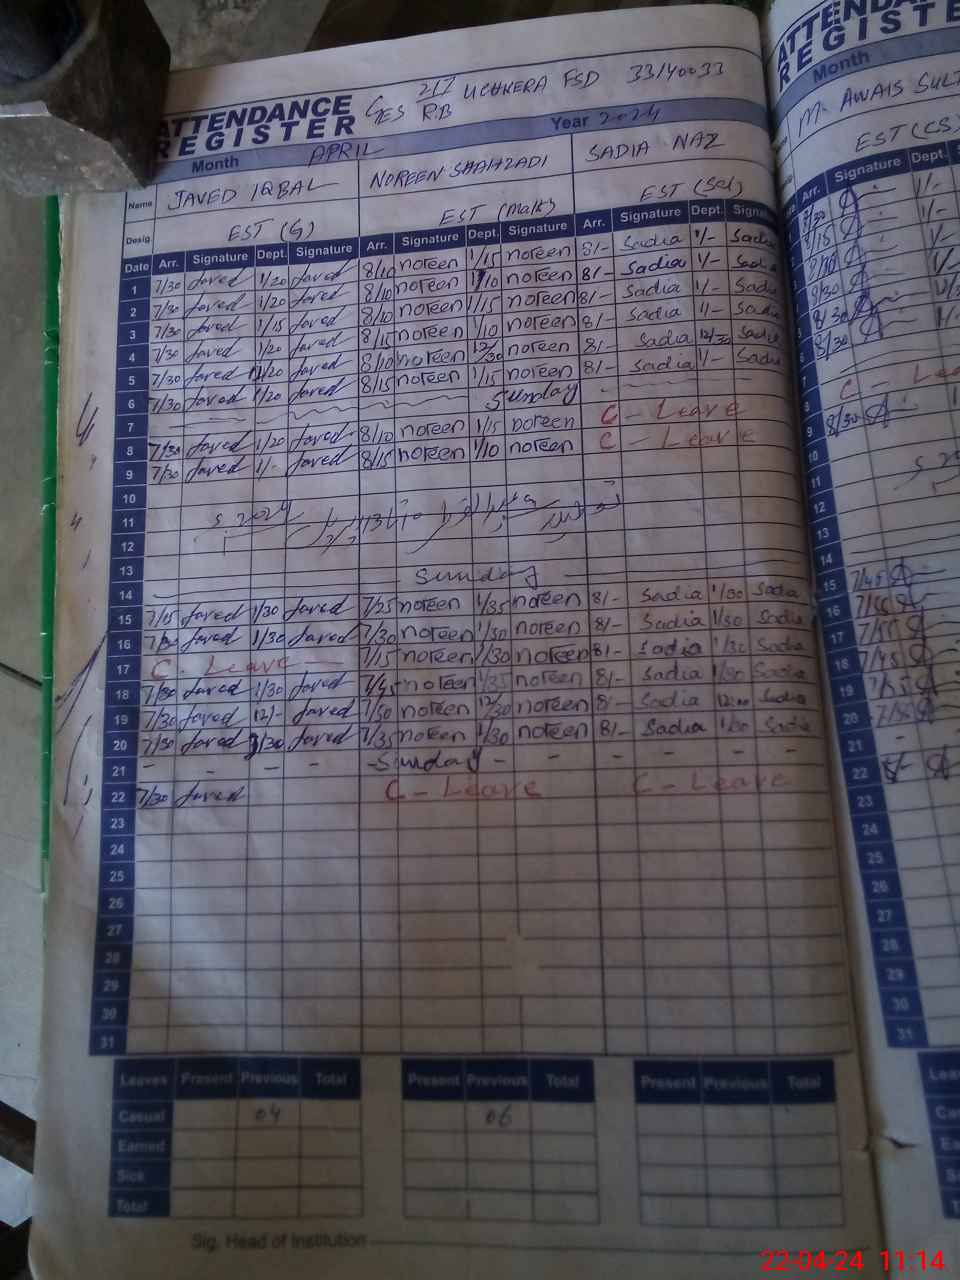 ATTENDANCE REGISTER
GES 217 R.B UCHKERA FSD 33140033
Month APRIL Year 2024
Name JAVED IQBAL NOREEN SHAHZADI SADIA NAZ
Desig EST (G) EST (Math) EST (Sci)
Date Arr. Signature Dept. Signature Arr. Signature Dept. Signature Arr. Signature Dept. Signature
1 7/30 Javed 1/20 Javed 8/10 noreen 1/15 noreen 8/- Sadia 1/- Sadia
2 7/30 Javed 1/20 Javed 8/10 noreen 1/10 noreen 8/- Sadia 1/- Sadia
3 7/30 Javed 1/15 Javed 8/10 noreen 1/15 noreen 8/- Sadia 1/- Sadia
4 7/30 Javed 1/20 Javed 8/15 noreen 1/10 noreen 8/- Sadia 1/- Sadia
5 7/30 Javed 1/20 Javed 8/10 noreen 12/30 noreen 8/- Sadia 12/30 Sadia
6 7/30 Javed 1/20 Javed 8/15 noreen 1/15 noreen 8/- Sadia 1/- Sadia
7 Sunday
8 7/30 Javed 1/20 Javed 8/10 noreen 1/15 noreen C - Leave
9 7/30 Javed 1/- Javed 8/15 noreen 1/10 noreen C - Leave
10
11
12
13
14 Sunday
15 7/15 Javed 1/30 Javed 7/25 noreen 1/35 noreen 8/- Sadia 1/30 Sadia
16 7/30 Javed 1/30 Javed 7/30 noreen 1/30 noreen 8/- Sadia 1/30 Sadia
17 C - Leave 7/15 noreen 1/30 noreen 8/- Sadia 1/30 Sadia
18 7/30 Javed 1/30 Javed 7/45 noreen 1/35 noreen 8/- Sadia 1/30 Sadia
19 7/30 Javed 12/- Javed 7/50 noreen 12/30 noreen 8/- Sadia 12:00 Sadia
20 7/30 Javed 1/30 Javed 7/35 noreen 1/30 noreen 8/- Sadia 1/30 Sadia
21 - - - - - Sunday - - - - -
22 7/30 Javed C - Leave C - Leave
23
24
25
26
27
28
29
30
31
Leaves Present Previous Total Present Previous Total Present Previous Total
Casual 04 06
Earned
Sick
Total
Sig. Head of Institution
ATTENDANCE REGISTER
Month
M. AWAIS
EST (CS)
Arr. Signature Dept.
22-04-24 11:14